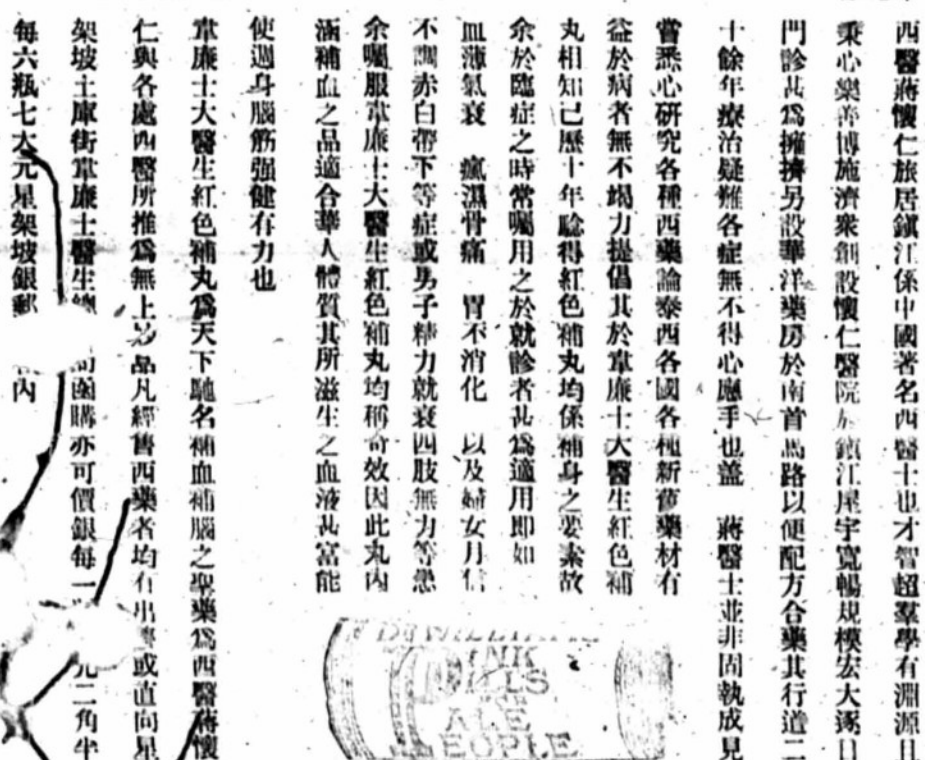 西醫蔣懷仁旅居鎭江係中國著名西醫士也才智超羣學有淵源且
秉心樂善博施濟衆創設懷仁醫院於鎭江屋宇寬暢規模宏大逐日
門診甚爲擁擠另設華洋藥房於南首馬路以便配方合藥其行道二
十餘年療治疑難各症無不得心應手也蓋 蔣醫士並非固執成見
嘗悉心研究各種西藥論泰西各國各種新舊藥材有
益於病者無不竭力提倡其於韋廉士大醫生紅色補
丸相知已歷十年騐得紅色補丸均係補身之要素故
余於臨症之時常囑用之於就診者甚爲適用即如
血薄氣衰 瘋濕骨痛 胃不消化 以及婦女月信
不調赤白帶下等症或男子精力就衰四肢無力等患
余囑服韋廉士大醫生紅色補丸均稱奇效因此丸內
涵補血之品適合華人體質其所滋生之血液甚富能
使週身腦筋强健有力也
韋廉士大醫生紅色補丸爲天下馳名補血補腦之聖藥爲西醫蔣懷
仁與各處西醫所推爲無上妙品凡經售西藥者均有出售或直向星
架坡土庫街韋廉士醫生總 局函購亦可價銀每一 元二角半
每六瓶七大元星架坡銀郵 內
DR WILLIAMS
PINK
PILLS
PALE
PEOPLE